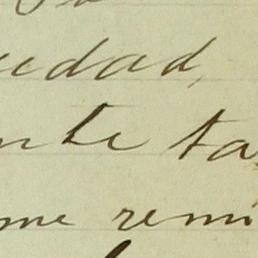 edad,
nte ta
me remi